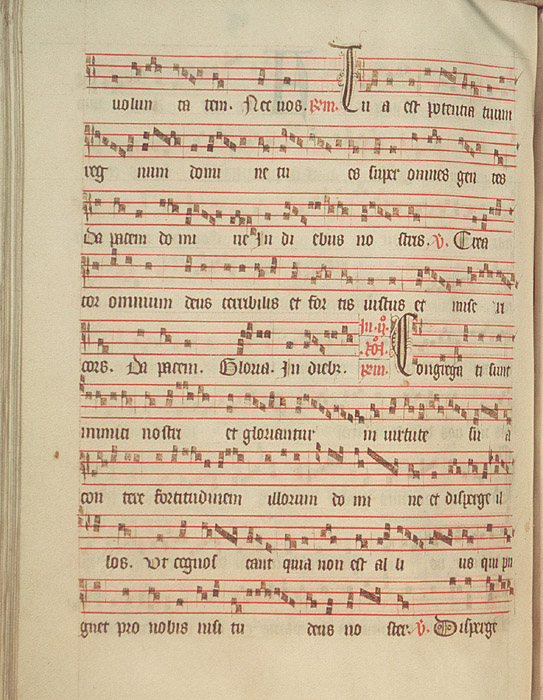 uolun ta tem. Nec uos. Rm. Tu a est potentia tuum
reg num domi ne tu es super omnes gen tes
Da pacem do mi ne In di ebus no stris. V. Crea
tor omnium deus terribilis et for tis iustus et mise ri
cors. Da pacem. Gloria. In diebz.
Rm. Congrega ti sunt
inimici nostri et gloriantur in uirtute su a
con tere fortitudinem illorum do mi ne et disperge il
los. Vt cognos cant quia non est al li us qui pu
gnet pro nobis nisi tu deus no ster. V. Disperge